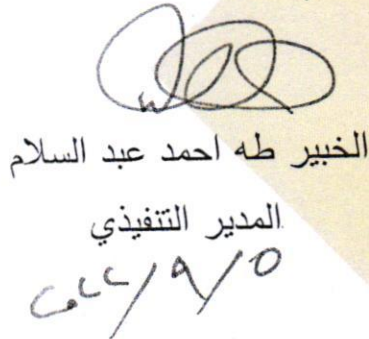 الخبير طه احمد عبد السلام
المدير التنفيذي
٢٠٢٢/٩/٥